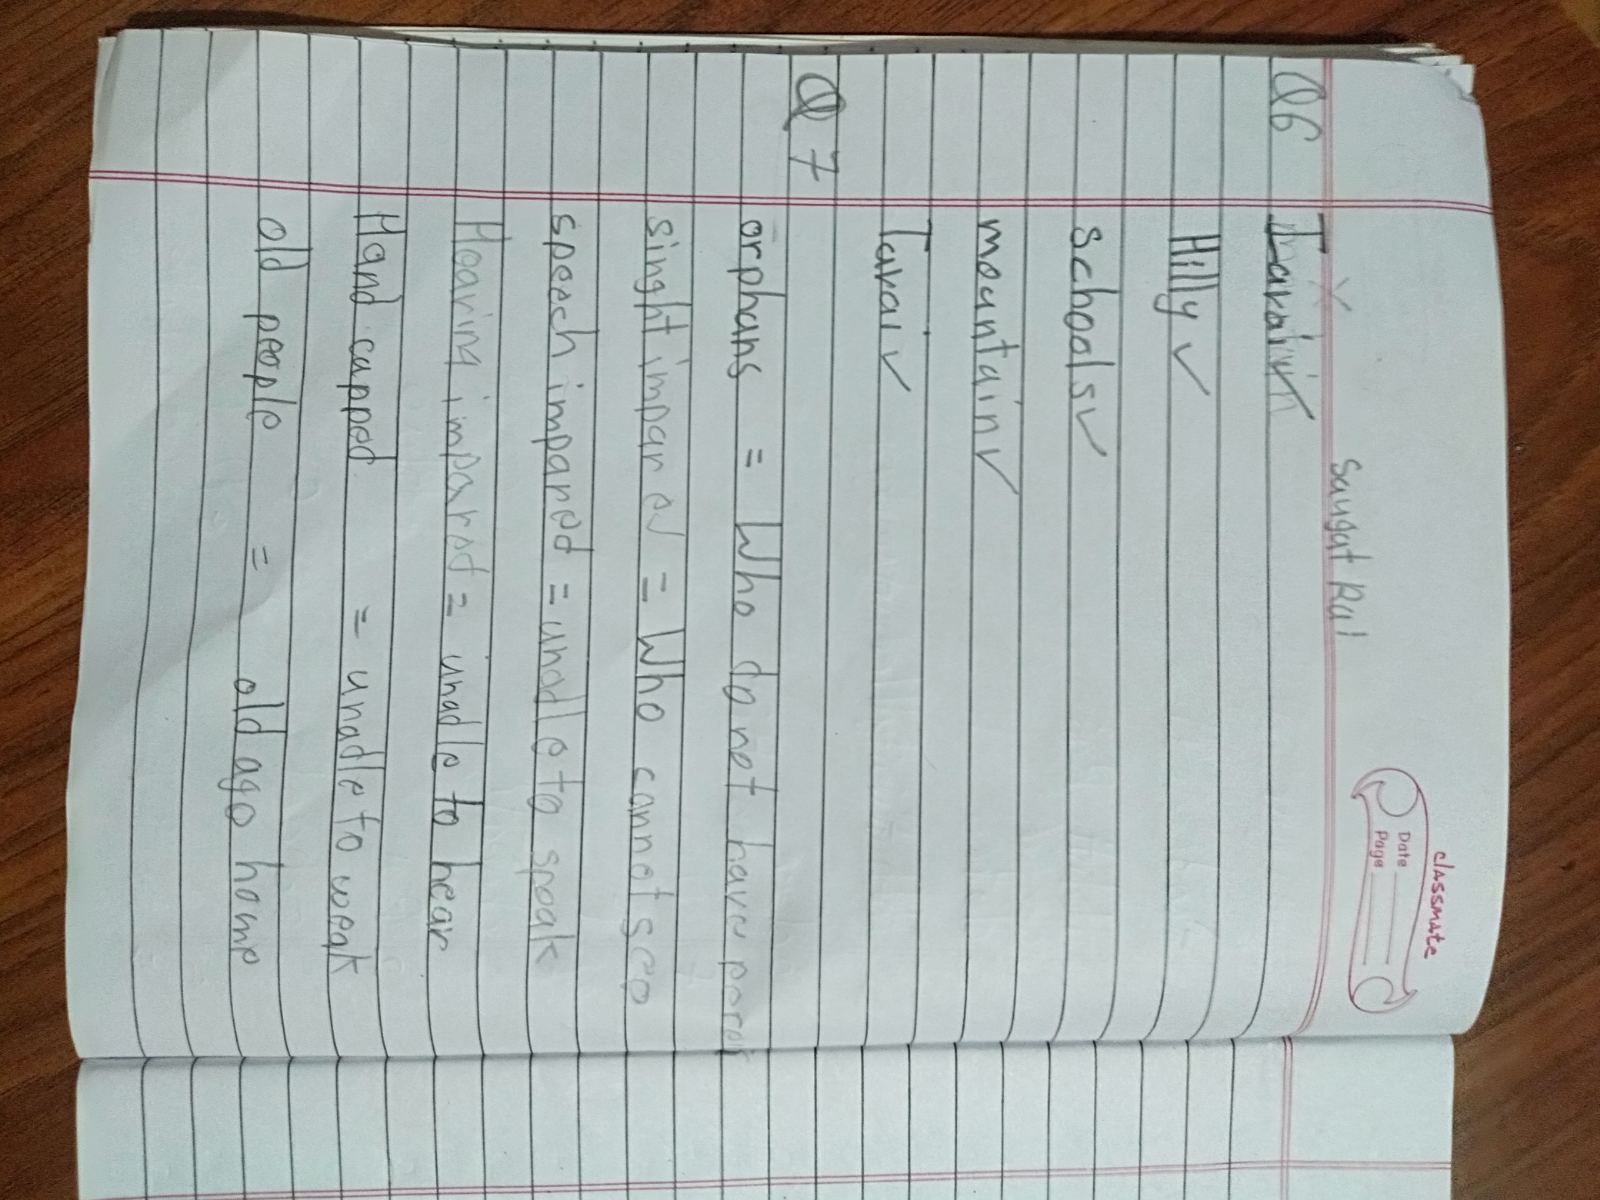 classmate
Date
Page
Saugat Rai
Q6
Hilly ✓
schools ✓
mountain ✓
Tarai ✓
Q 7
orphans = Who do not have
singht impared = Who cannot see
speech impared = unadle to speak
Hearing impared = unadle to hear
Hand capped = unadle to weak
old people = old age home